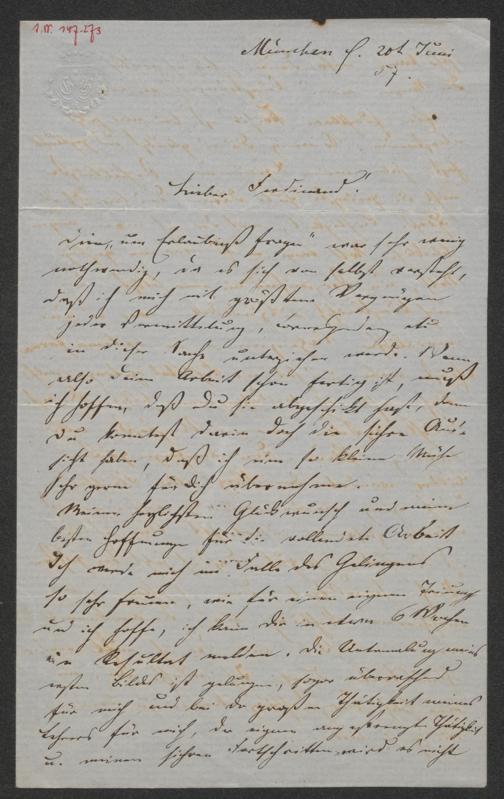 I.N. 147.273
München d. 20t Juni
57.
Lieber Ferdinand!
Dein „um Erlaubniß fragen" war sehr wenig
nothwendig, da es sich von selbst versteht,
daß ich mich mit größtem Vergnügen
jeder Vermittelung,
in dieser Sache unterziehen werde. Wenn
also deine Arbeit schon fertig ist, muß
ich hoffen, daß du sie abgeschickt hast, denn
du konntest darin doch die sichre Aus-
sicht haben, daß ich eine so kleine Mühe
sehr gerne für dich übernehme.
Meinen herzlichsten Glückwunsch und meine
besten Hoffnungen für die vollendete Arbeit
Ich werde mich im Falle des Gelingens
so sehr freuen, wie für einen eignen Triumph
und ich hoffe, ich kann dir in etwa 6 Wochen
ein Resultat melden. Die Untermalung meines
ersten Bilds ist gelungen, sogar überraschend
für mich und bei der großen Thätigkeit meines
Lehrers für mich, der eignen angestrengten Thätigkeit
u. meinen sichren Fortschritten, wird es nicht